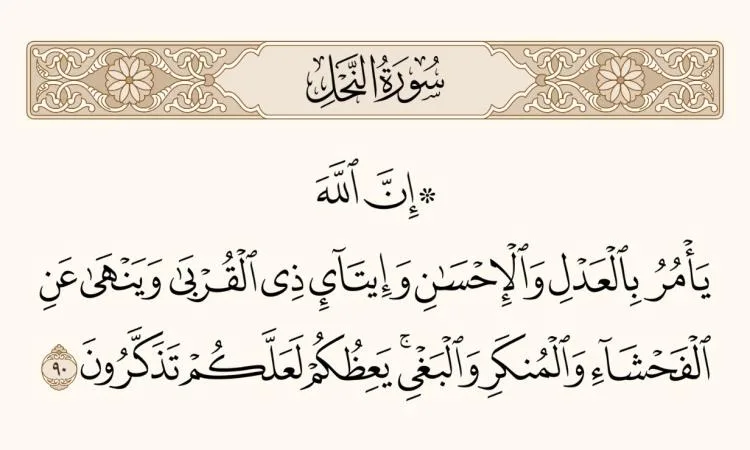 سُورَةُ النَّحۡلِ
۞ إِنَّ ٱللَّهَ
يَأۡمُرُ بِٱلۡعَدۡلِ وَٱلۡإِحۡسَٰنِ وَإِيتَآيِٕ ذِي ٱلۡقُرۡبَىٰ وَيَنۡهَىٰ عَنِ
ٱلۡفَحۡشَآءِ وَٱلۡمُنكَرِ وَٱلۡبَغۡيِۚ يَعِظُكُمۡ لَعَلَّكُمۡ تَذَكَّرُونَ ٩٠